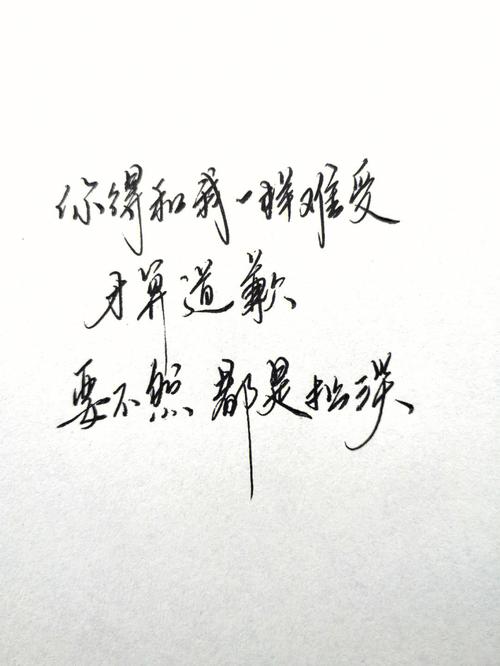 你得和我一样难受
才算道歉
要不然 都是扯淡